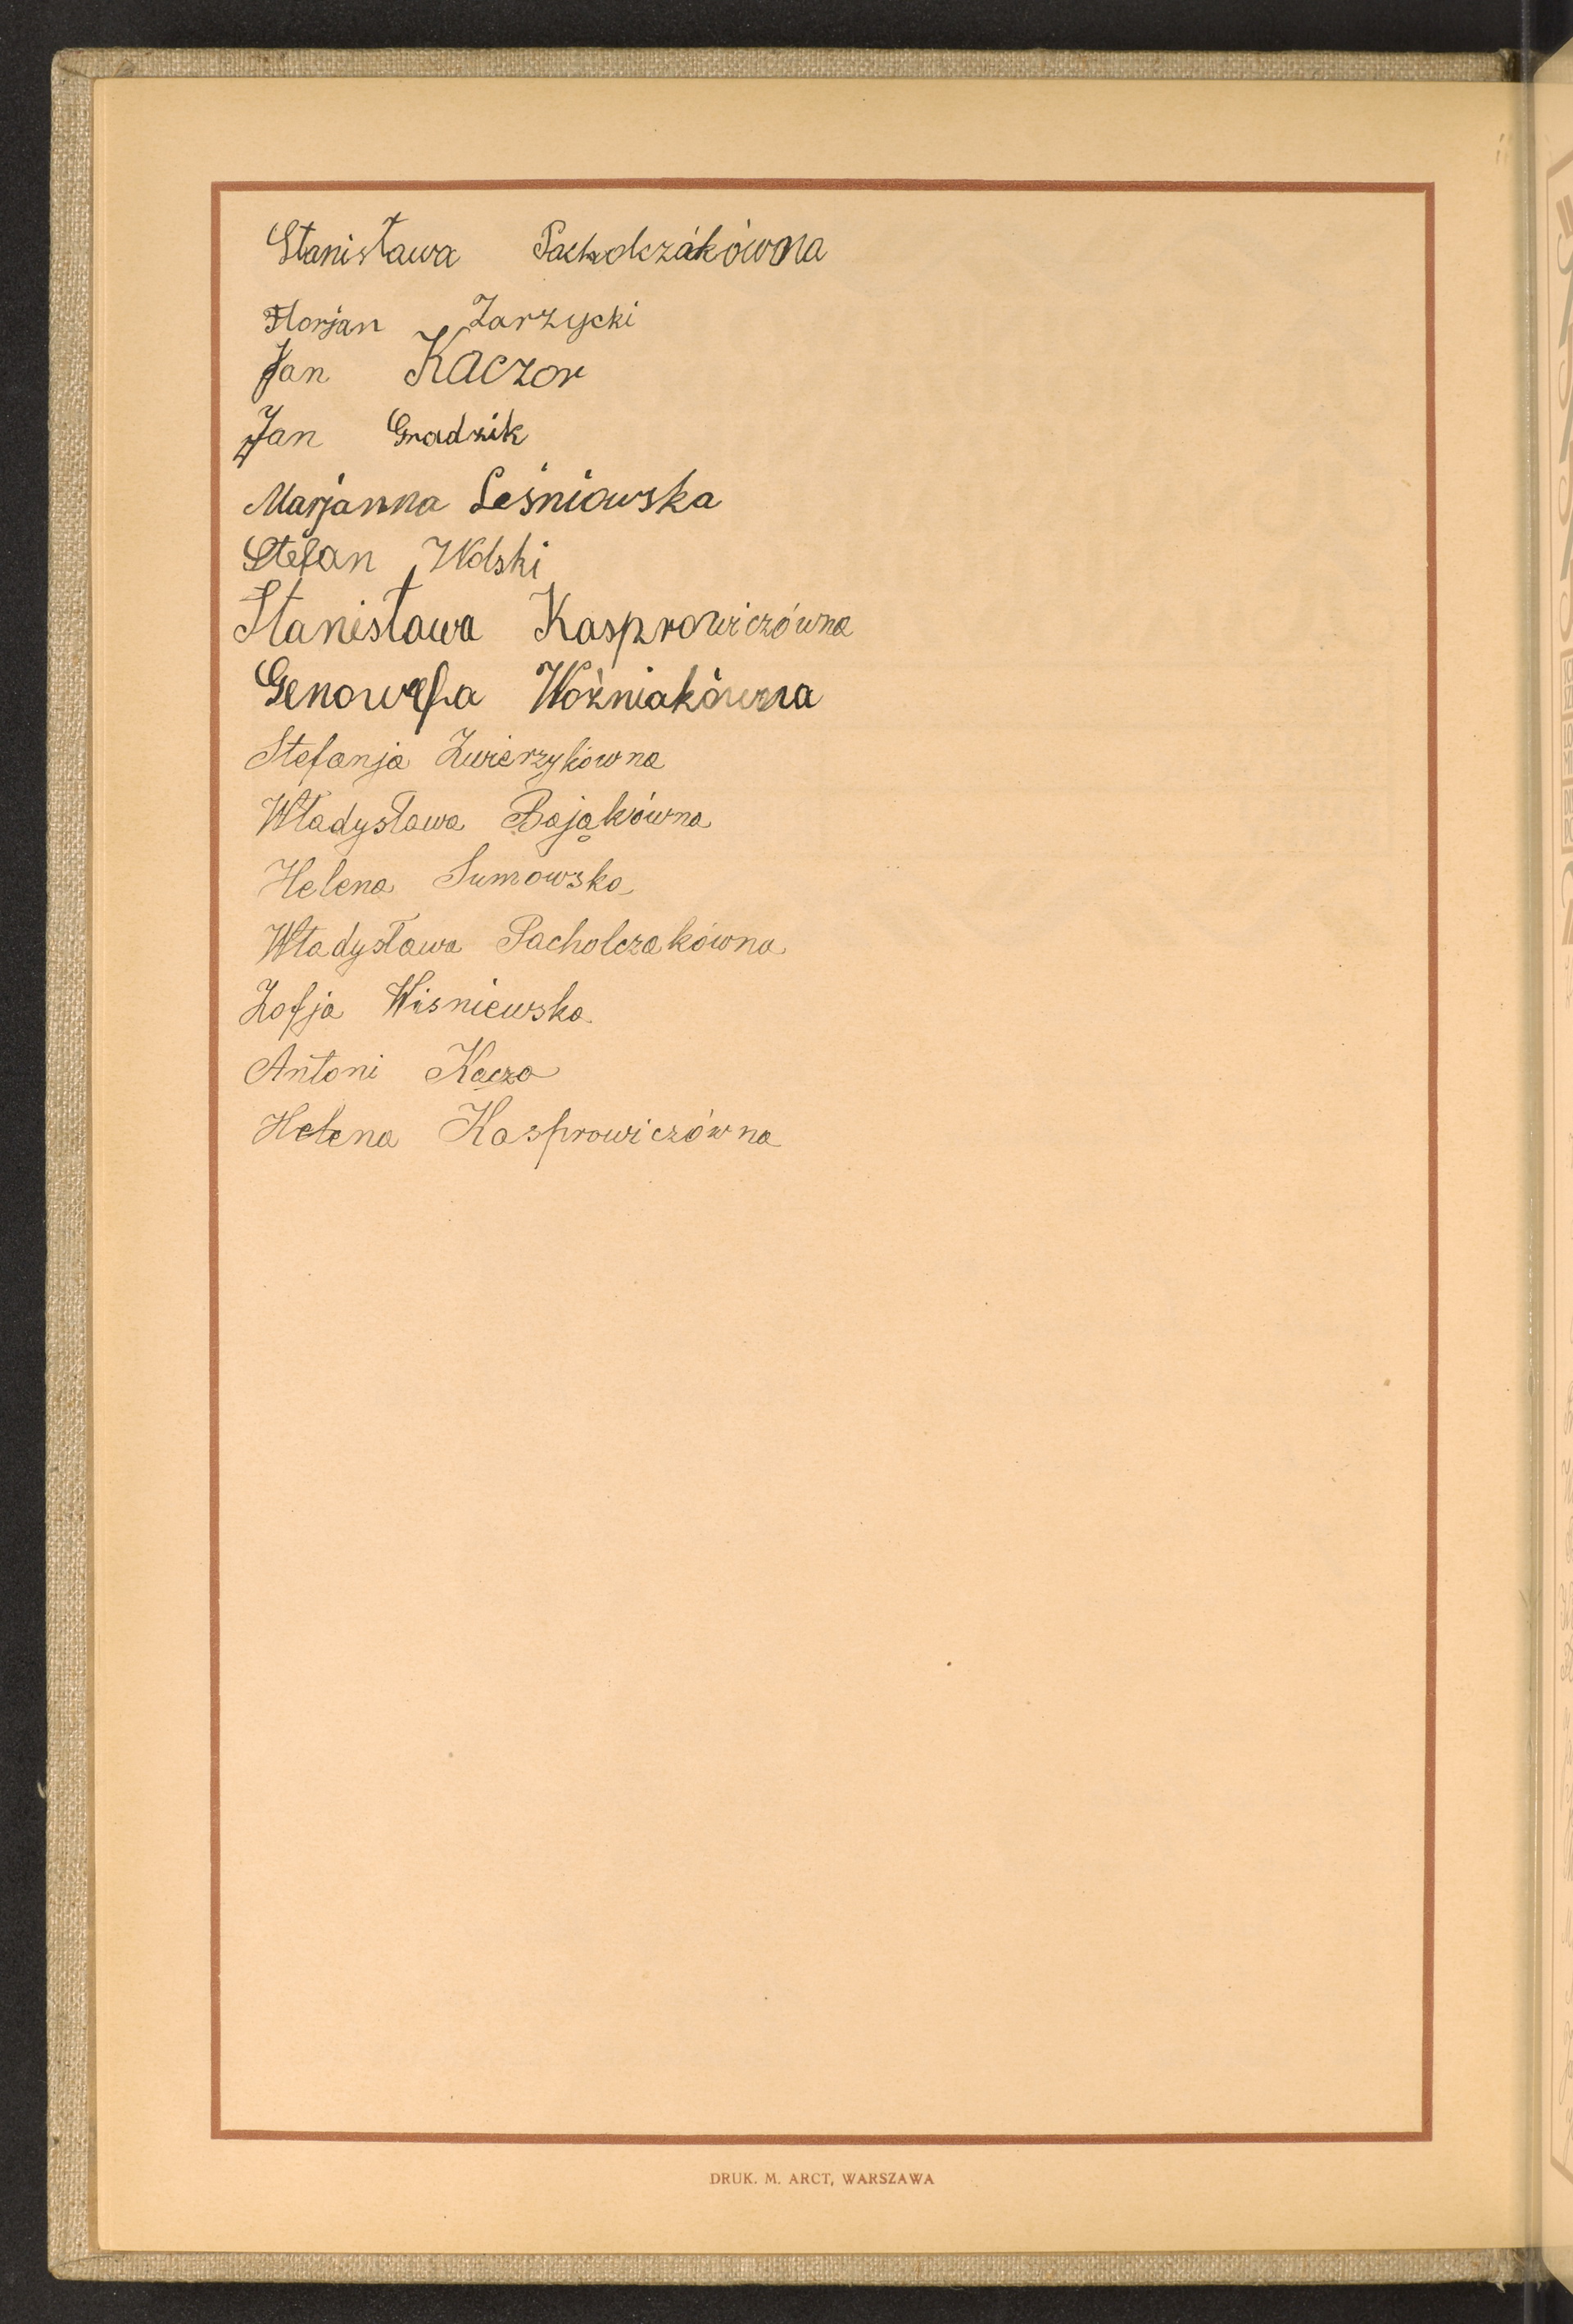 Stanisława Pacholczákówna
Florjan Zarzycki
Jan Kaczor
Jan Gradzik
Marjanna Leśniowska
Stefan Wolski
Stanisława Kasprowiczówna
Genowefa Woźniakówna
Stefanja Zwierzykówna
Władysława Bająkówna
Helena Sumowska
Władysława Pacholczakówna
Zofja Wisniewska
Antoni Kacza
Helena Kasprowiczówna
DRUK. M. ARCT, WARSZAWA